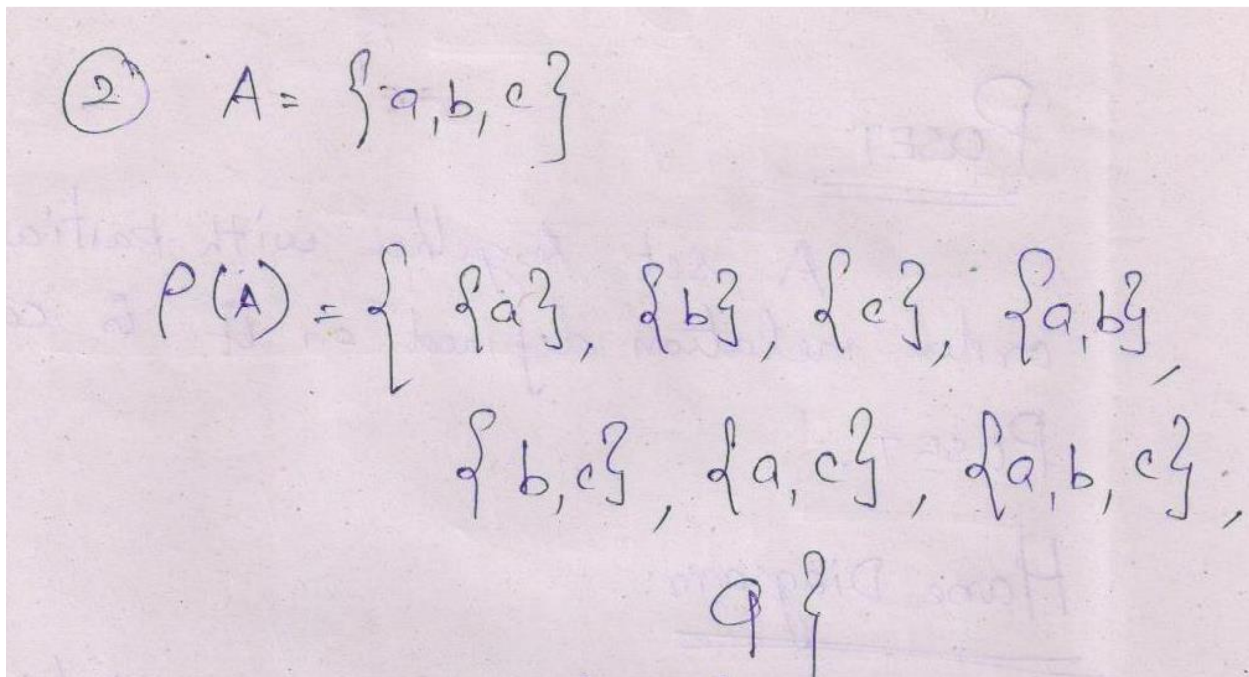 ② A = {a, b, c}
P(A) = { {a}, {b}, {c}, {a,b},
{b,c}, {a,c}, {a,b,c},
φ}